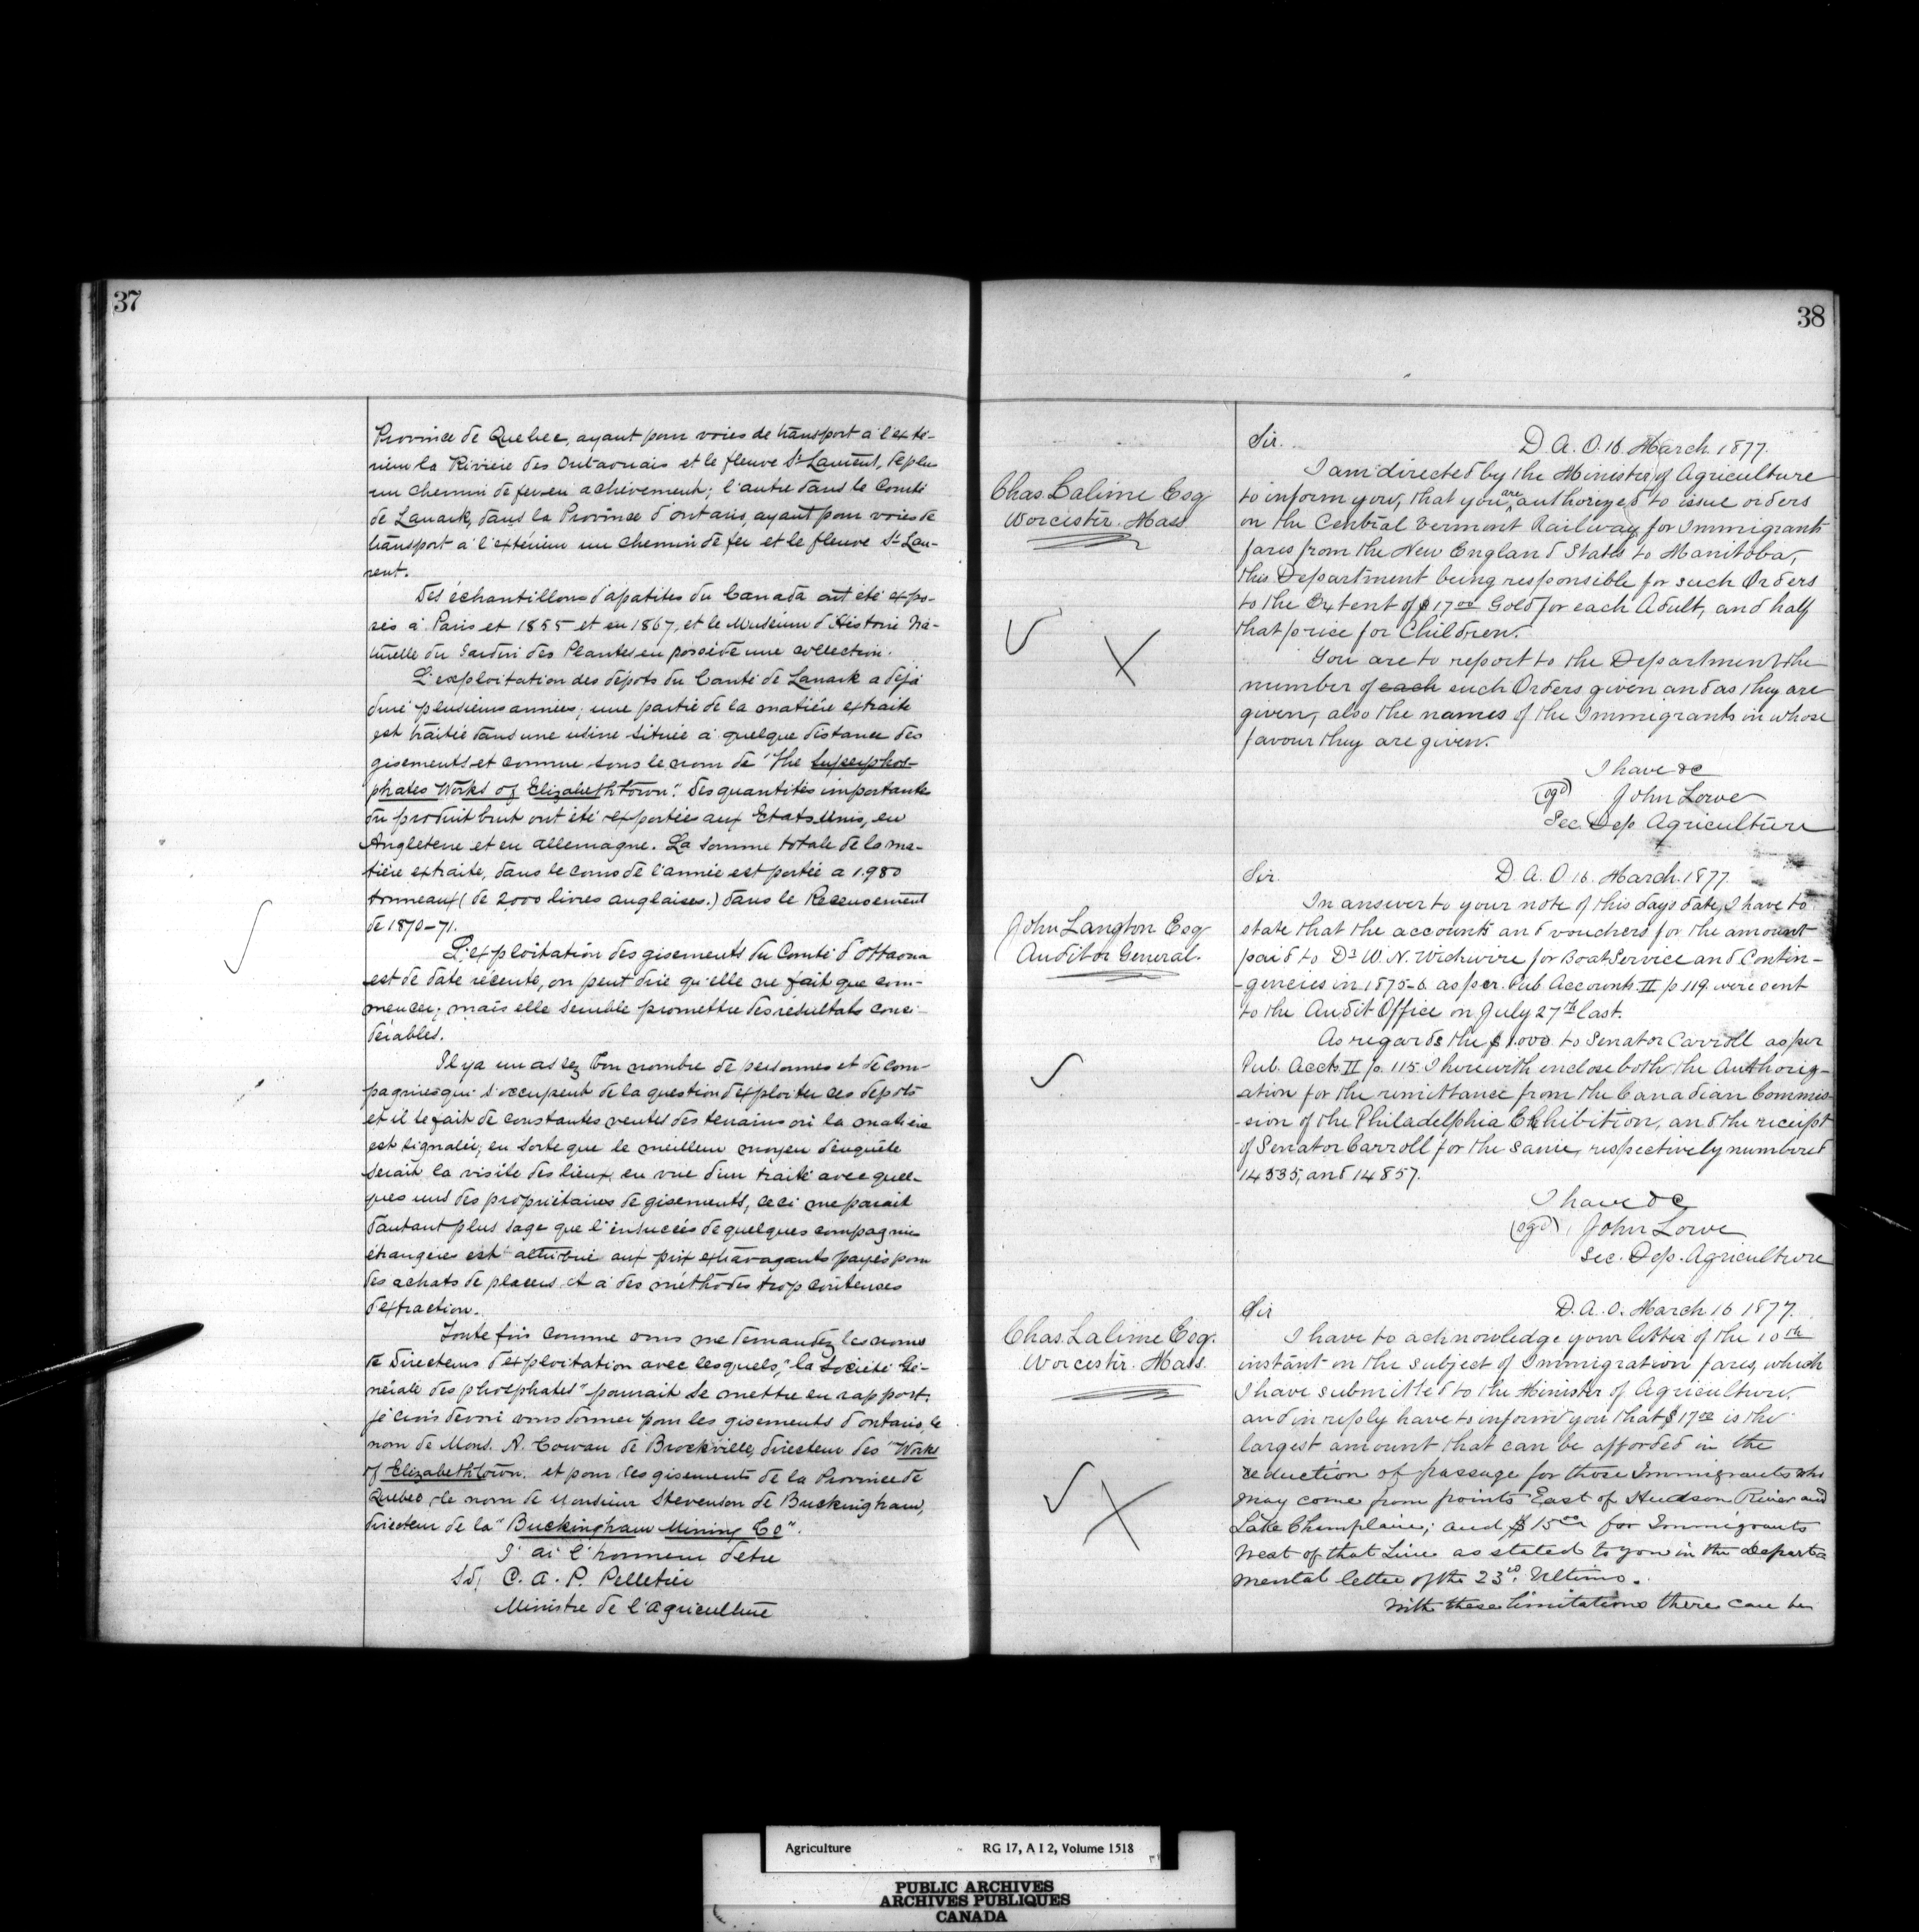 37
Province de Quebec, ayant pour voies de transport à l'exté-
rieur la Rivière des Outaouais et le fleuve St Laurent, de plus
un chemin de fer en achèvement; l'autre dans le Comté
de Lanark, dans la Province d'Ontario, ayant pour voies de
transport à l'extérieur un chemin de fer et le fleuve St Lau-
rent.
Des échantillons d'apatites du Canada ont été expo-
sés à Paris et 1855 et en 1867, et le Muséum d'Histoire Na-
turelle du Jardin des Plantes en possède une collection.
L'exploitation des dépots du Comté de Lanark a déjà
duré plusieurs années; une partie de la matière extraite
est traitée dans une usine située à quelque distance des
gisements et connue sous le nom de "The Superphos-
phates Works of Elizabethtown". Des quantités importantes
du produit brut ont été exportées aux Etats Unis, en
Angleterre et en Allemagne. La somme totale de la ma-
tière extraite, dans le cours de l'année est portée a 1.980
tonneaux (de 2,000 livres anglaises.) dans le Recensement
de 1870-71.
L'exploitation des gisements du Comté d'Ottawa
est de date récente, on peut dire qu'elle ne fait que com-
mencer; mais elle semble promettre des résultats consi-
dérables.
Il y a un assez bon nombre de personnes et de com-
pagnies qui s'occupent de la question d'exploiter ces depots
et il se fait de constantes ventes des terrains où la matière
est signalée; en sorte que le meilleur moyen d'enquête
serait la visite des lieux en vue d'un traité avec quel-
ques uns des propriétaires de gisements, ceci me parait
d'autant plus sage que l'insuccès de quelques compagnies
étrangères est attribué aux prix extravagants payés pour
des achats de placers et à des méthodes trop couteuses
d'extraction.
Toute fois comme vous me demandez les noms
de Directeurs d'exploitation avec lesquels, "la Société Gé-
nérale des phosphates" pourrait se mettre en rapport,
je crois devoir vous donner pour les gisements d'ontario, le
nom de Mons. A. Cowan de Brockville, directeur des "Works
of Elizabethtown. et pour les gisements de la Province de
Quebec, le nom de Monsieur Stevenson de Buckingham,
directeur de la "Buckingham Mining Co".
J'ai l'honneur d'etre
Sd/ C. A. P. Pelletier
Ministre de l'Agriculture
38
Chas. Lalime Esq
Worcester. Mass
Sir. D. A. O. 16. March. 1877.
I am directed by the Minister of Agriculture
to inform you, that you are authorized to issue orders
on the Central Vermont Railway for Immigrants
fares from the New England States to Manitoba,
this Department being responsible for such Orders
to the Extent of $17.00 Gold for each Adult, and half
that price for Children.
You are to report to the Department the
number of each such Orders given and as they are
given, also the names of the Immigrants in whose
favour they are given.
I have &c
(sgd) John Lowe
Sec. Dep Agriculture
John Langton Esq
Auditor General.
Sir. D. A. O 16. March. 1877.
In answer to your note of this days date, I have to
state that the accounts and vouchers for the amount
paid to Dr W. N. Wickwire for Boat Service and Contin-
-gencies in 1875-6 as per. Pub. Accounts. II p 119 were sent
to the Audit Office on July 27th last.
As regards the $1.000 to Senator Carroll as per
Pub. Accts. II p. 115. I herewith enclose both the Authoriz-
ation for the remittance from the Canadian Commis-
-sion of the Philadelphia Exhibition, and the receipt
of Senator Carroll for the same, respectively numbered
14535, and 14857.
I have &c
(sgd) John Lowe
Sec. Dep. Agriculture
Chas. Lalime Esq.
Worcester. Mass.
Sir D. A. O. March 16 1877.
I have to acknowledge your letter of the 10th
instant on the subject of Immigration fares, which
I have submitted to the Minister of Agriculture,
and in reply have to inform you that $17.00 is the
largest amount that can be afforded in the
reduction of passage for those Immigrants who
may come from points East of Hudson River and
Lake Champlain; and $15.00 for Immigrants
West of that Line as stated to you in the Depart-
mental letter of the 23rd. Ultimo.
With these limitations there can be
Agriculture RG 17, A I 2, Volume 1518
PUBLIC ARCHIVES
ARCHIVES PUBLIQUES
CANADA